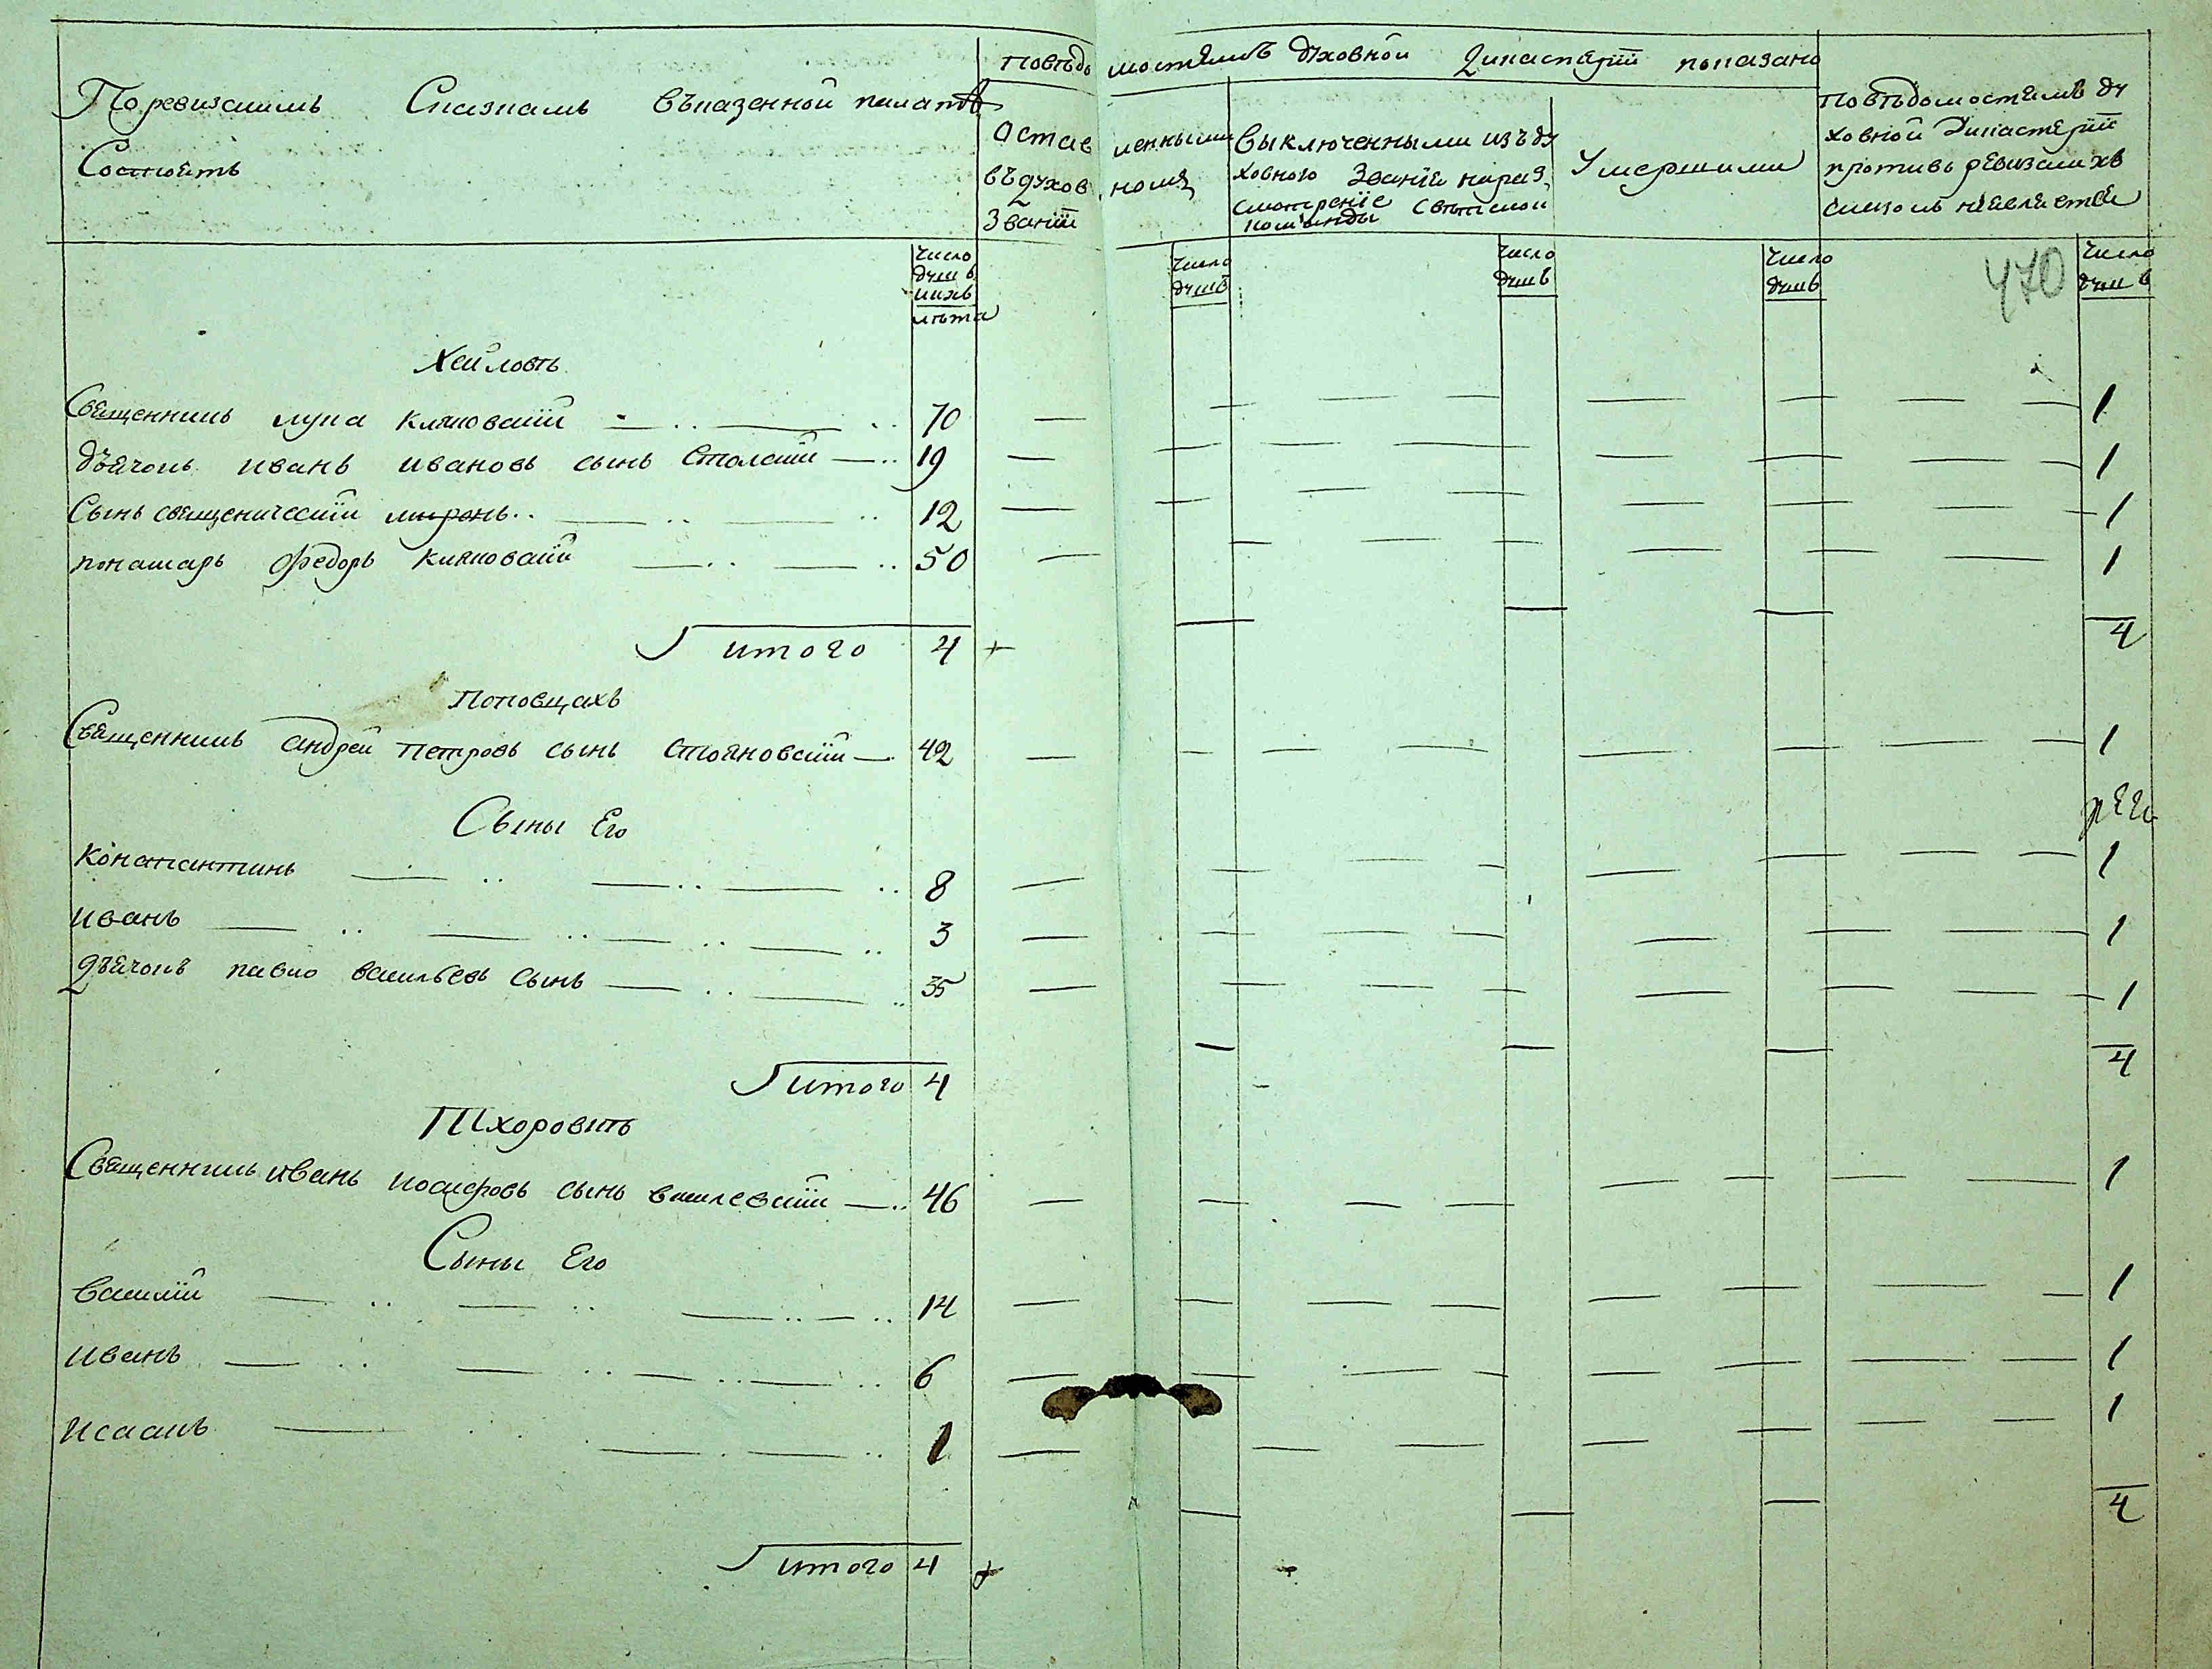 Поревизскимъ Сказкамъ Въказенной палатѣ
Состоитъ
Повѣдомостямъ духовной Дикастеріи показано
Оставленными въдуховномъ Званіи
Выключенными изъ духовного Званія наразсмотреніе свѣтской команды
Умершими
Повѣдомостямъ духовной Дикастеріи противъ ревизскихъ сказокъ неявляется
Число душъ ихъ лѣта
Число душъ
Число душъ
Число душъ
470
Число душъ
Священникъ лука 70 1
дьячокъ иванъ ивановъ сынъ 19 1
Сынъ священическій миронъ 12 1
понамарь федоръ 50 1
итого 4 4
Поповцахъ
Священникъ андрей петровъ сынъ стояновскій 42 1
Сыны Его
Константинъ 8 1
иванъ 3 1
дьячокъ павло васильевъ сынъ 35 1
итого 4 4
Тхоровкѣ
Священникъ иванъ иосифовъ сынъ василевскій 46 1
Сыны Его
василій 14 1
иванъ 6 1
исаакъ 1 1
4
итого 4